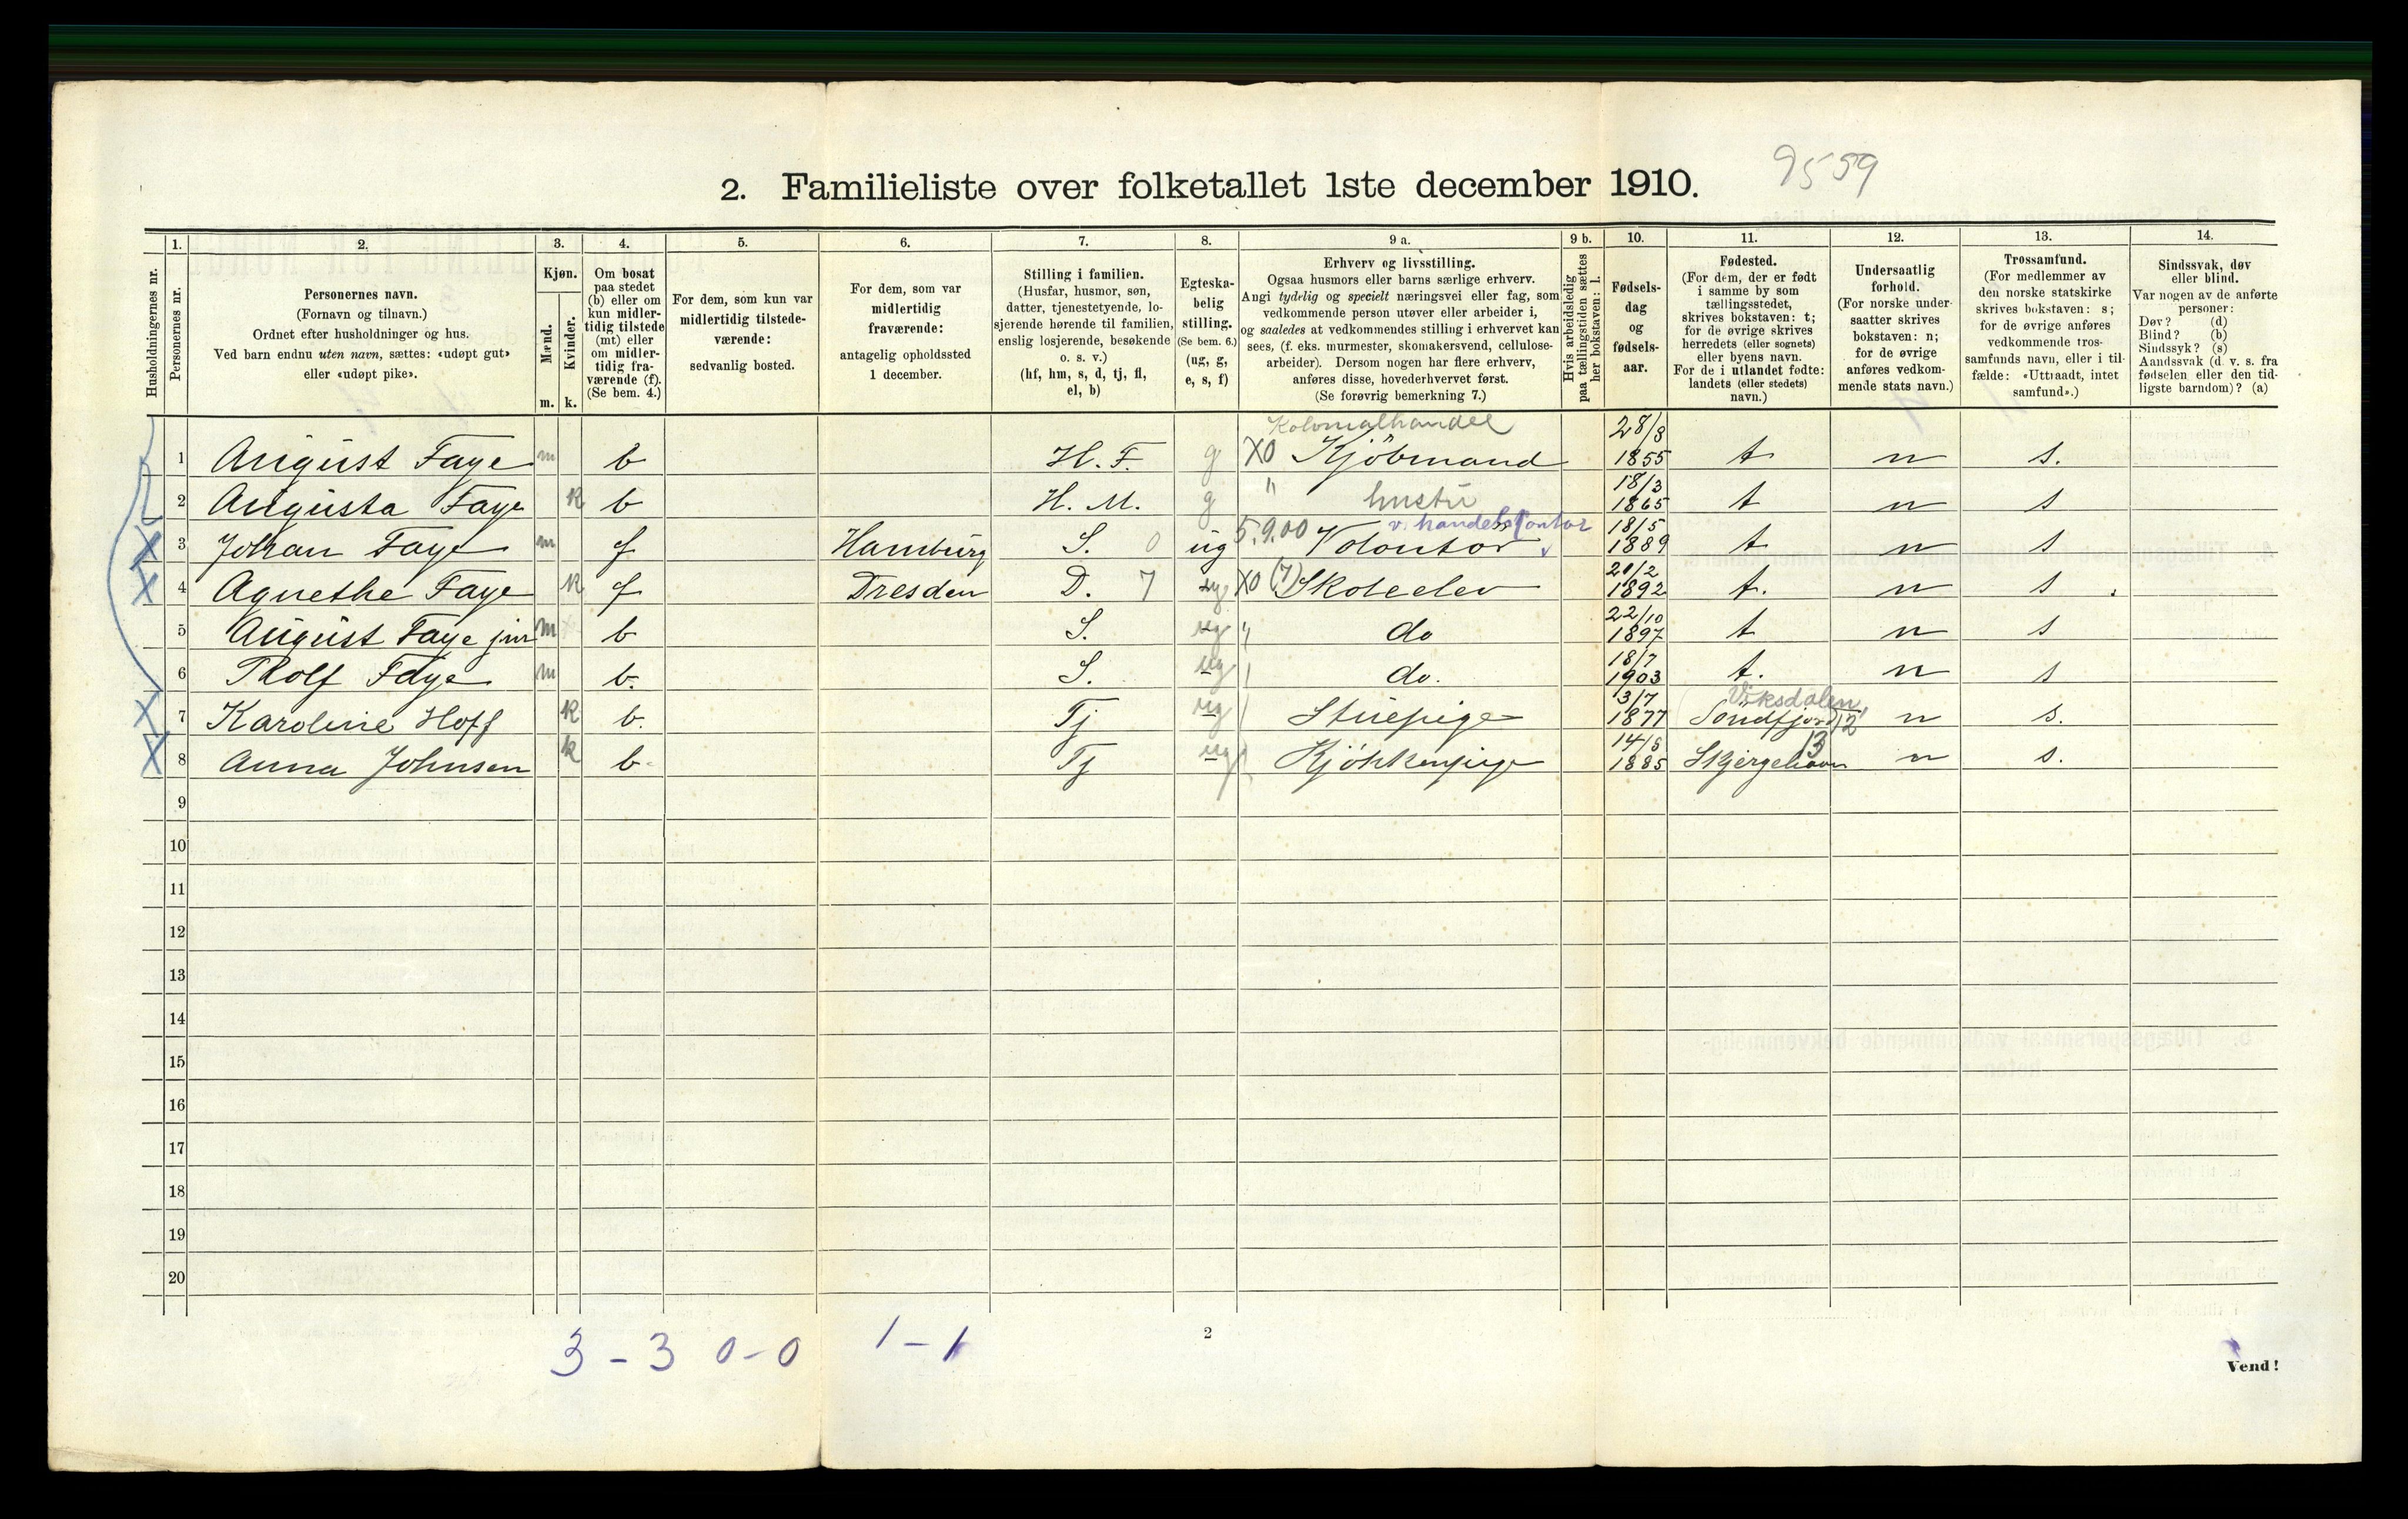 9559
2. Familieliste over folketallet 1ste december 1910.
1. 2. 3. 4. 5. 6. 7. 8. 9 a. 9 b. 10. 11. 12. 13. 14.
Husholdningernes nr.
Personernes nr.
Personernes navn.
(Fornavn og tilnavn.)
Ordnet efter husholdninger og hus.
Ved barn endnu uten navn, sættes: «udøpt gut»
eller «udøpt pike».
Kjøn.
Mænd.
Kvinder.
m. k.
Om bosat
paa stedet
(b) eller om
kun midler-
tidig tilstede
(mt) eller
om midler-
tidig fra-
værende (f).
(Se bem. 4.)
For dem, som kun var
midlertidig tilstede-
værende:
sedvanlig bosted.
For dem, som var
midlertidig
fraværende:
antagelig opholdssted
1 december.
Stilling i familien.
(Husfar, husmor, søn,
datter, tjenestetyende, lo-
sjerende hørende til familien,
enslig losjerende, besøkende
o. s. v.)
(hf, hm, s, d, tj, fl,
el, b)
Egteska-
belig
stilling.
(Se bem. 6.)
(ug, g,
e, s, f)
Erhverv og livsstilling.
Ogsaa husmors eller barns særlige erhverv.
Angi tydelig og specielt næringsvei eller fag, som
vedkommende person utøver eller arbeider i,
og saaledes at vedkommendes stilling i erhvervet kan
sees, (f. eks. murmester, skomakersvend, cellulose-
arbeider). Dersom nogen har flere erhverv,
anføres disse, hovederhvervet først.
(Se forøvrig bemerkning 7.)
Hvis arbeidsledig
paa tællingstiden sættes
her bokstaven: l.
Fødsels-
dag
og
fødsels-
aar.
Fødested.
(For dem, der er født
i samme by som
tællingsstedet,
skrives bokstaven: t;
for de øvrige skrives
herredets (eller sognets)
eller byens navn.
For de i utlandet fødte:
landets (eller stedets)
navn.)
Undersaatlig
forhold.
(For norske under-
saatter skrives
bokstaven: n;
for de øvrige
anføres vedkom-
mende stats navn.)
Trossamfund.
(For medlemmer av
den norske statskirke
skrives bokstaven: s;
for de øvrige anføres
vedkommende tros-
samfunds navn, eller i til-
fælde: «Uttraadt, intet
samfund».)
Sindssvak, døv
eller blind.
Var nogen av de anførte
personer:
Døv? (d)
Blind? (b)
Sindssyk? (s)
Aandssvak (d. v. s. fra
fødselen eller den tid-
ligste barndom)? (a)
Kolonialhandel 28/8
1 August Faye m b H. F. g X0 Kjöbmand 1855 t n s.
18/3
2 Augusta Faye k b H. M. g " hustru 1865 t n s
v. handelskontor 18/5
3 Johan Faye m f Hamburg S. 0 ug 5.9.00 Volontör 1889 t n s
21/2
4 Agnethe Faye k f Dresden D. 7 ug X0 (7) Skoleelev 1892 t. n s
22/10
5 August Faye jun m b S. ug " do 1897 t n s
18/7
6 Rolf Faye m b. S. ug do. 1903 t. n s
3/7 Viksdalen
7 Karoline Hoff k b. Tj ug Stuepige 1877 Söndfjord 12 n s.
14/5 13
8 Anna Johnsen k b. Tj ug Kjökkenpige 1885 Skjergehavn n s.
9
10
11
12
13
14
15
16
17
18
19
20
3 - 3 0 - 0 1 - 1
2
Vend!